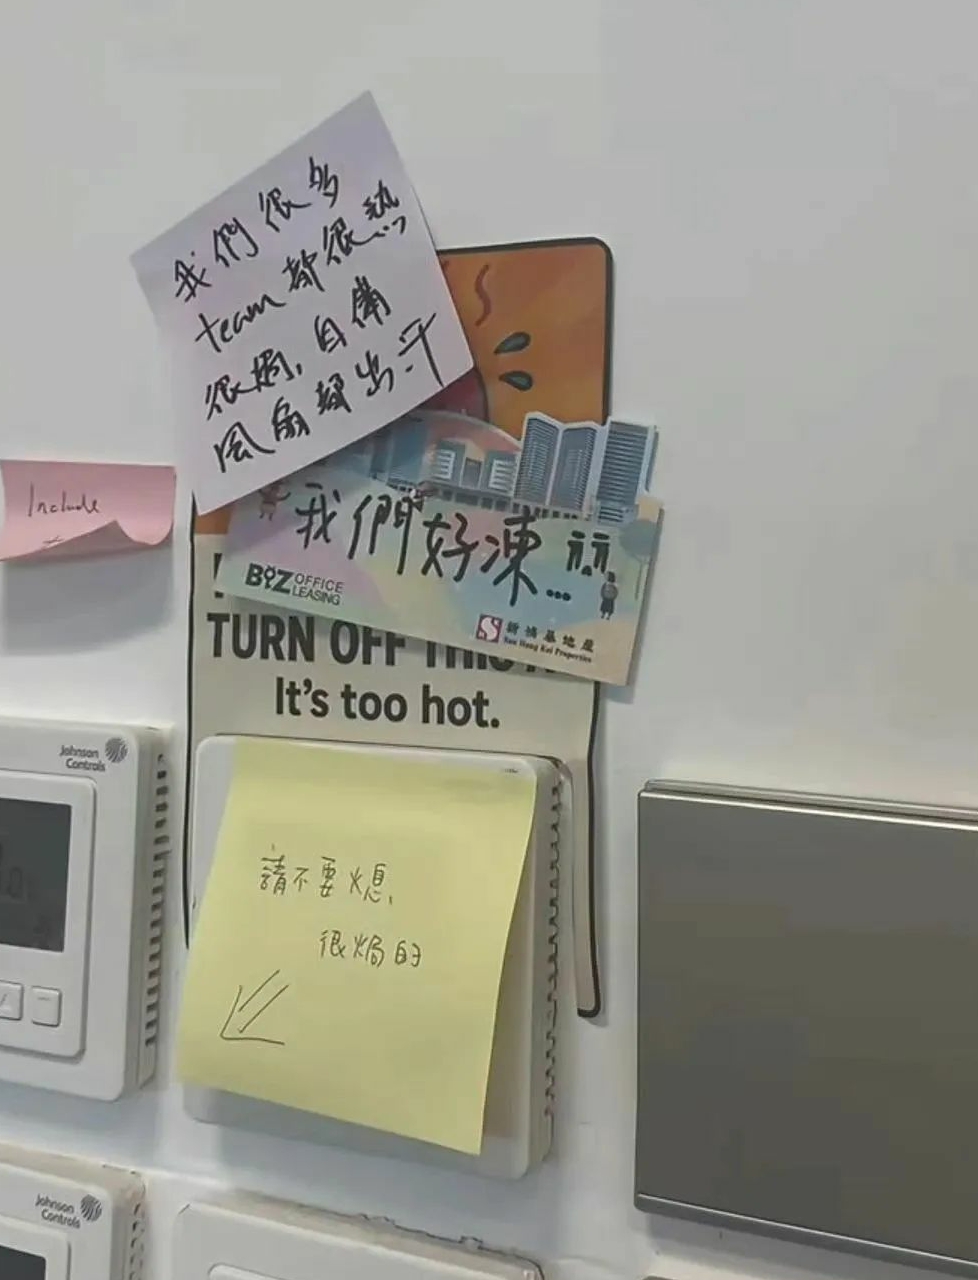 我們很多
team都很熱
很焗,自備
風扇都出汗
Include
我們好凍...
BIZ OFFICE
LEASING
新鴻基地產
Sun Hung Kai Properties
TURN OFF THIS
It's too hot.
Johnson
Controls
請不要熄,
很焗的
Johnson
Controls